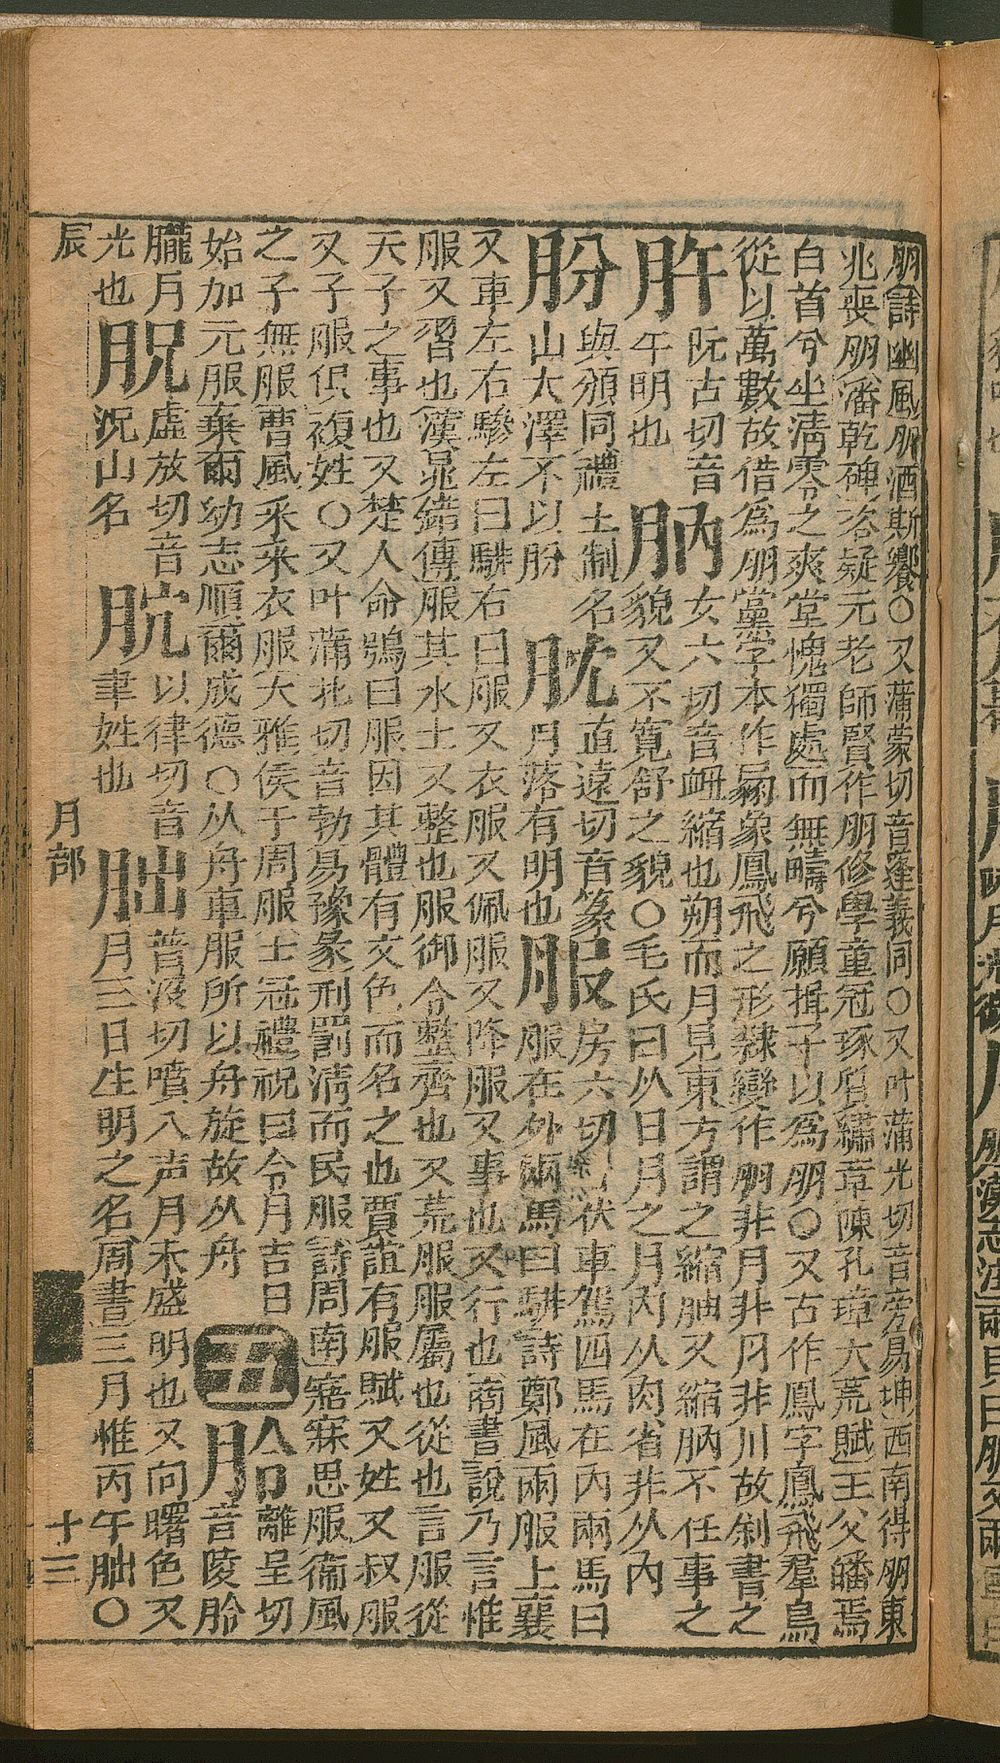 朋詩豳風朋酒斯饗○又蒲蒙切音蓬義同○又叶蒲光切音旁易坤西南得朋東
兆喪朋潘乾碑咨疑元老師賢作朋修學童冠琢質繡章陳孔璋大荒賦王父皤焉
白首兮坐淸零之爽堂愧獨處而無疇兮願揖子以爲朋○又古作鳳字鳳飛羣鳥
從以萬數故借爲朋黨字本作朋象鳳飛之形隸變作朋非月非丹非川故制書之
肝 阮古切音午明也 肭 女六切音衄縮也朔而月見東方謂之縮朒又縮肭不任事之貌又不寬舒之貌○毛氏曰从日月之月內从肉省非从內
肦 與頒同禮王制名山大澤不以肦 𦙂 直遠切音篆月落有明也 服 房六切音伏車駕四馬在內兩馬曰服在外兩馬曰騑詩鄭風兩服上襄
又車左右驂左曰騑右曰服又衣服又佩服又降服又事也又行也商書說乃言惟
服又習也漢鼂錯傳服其水土又整也服御令整齊也又荒服服屬也從也言服從
天子之事也又楚人命鴞曰服因其體有文色而名之也賈誼有服賦又姓又叔服
又子服俱複姓○又叶蒲北切音勃易豫彖刑罰淸而民服詩周南寤寐思服衞風
之子無服曹風采采衣服大雅侯于周服士冠禮祝曰令月吉日
始加元服棄爾幼志順爾成德○从舟車服所以舟旋故从舟 五 朎 離呈切音陵朎
朧月光也 𦚟 虛放切音況山名 𦙍 以律切音聿姓也 朏 普沒切噴入声月未盛明也又向曙色又月三日生明之名周書三月惟丙午朏○
辰 月部 十三